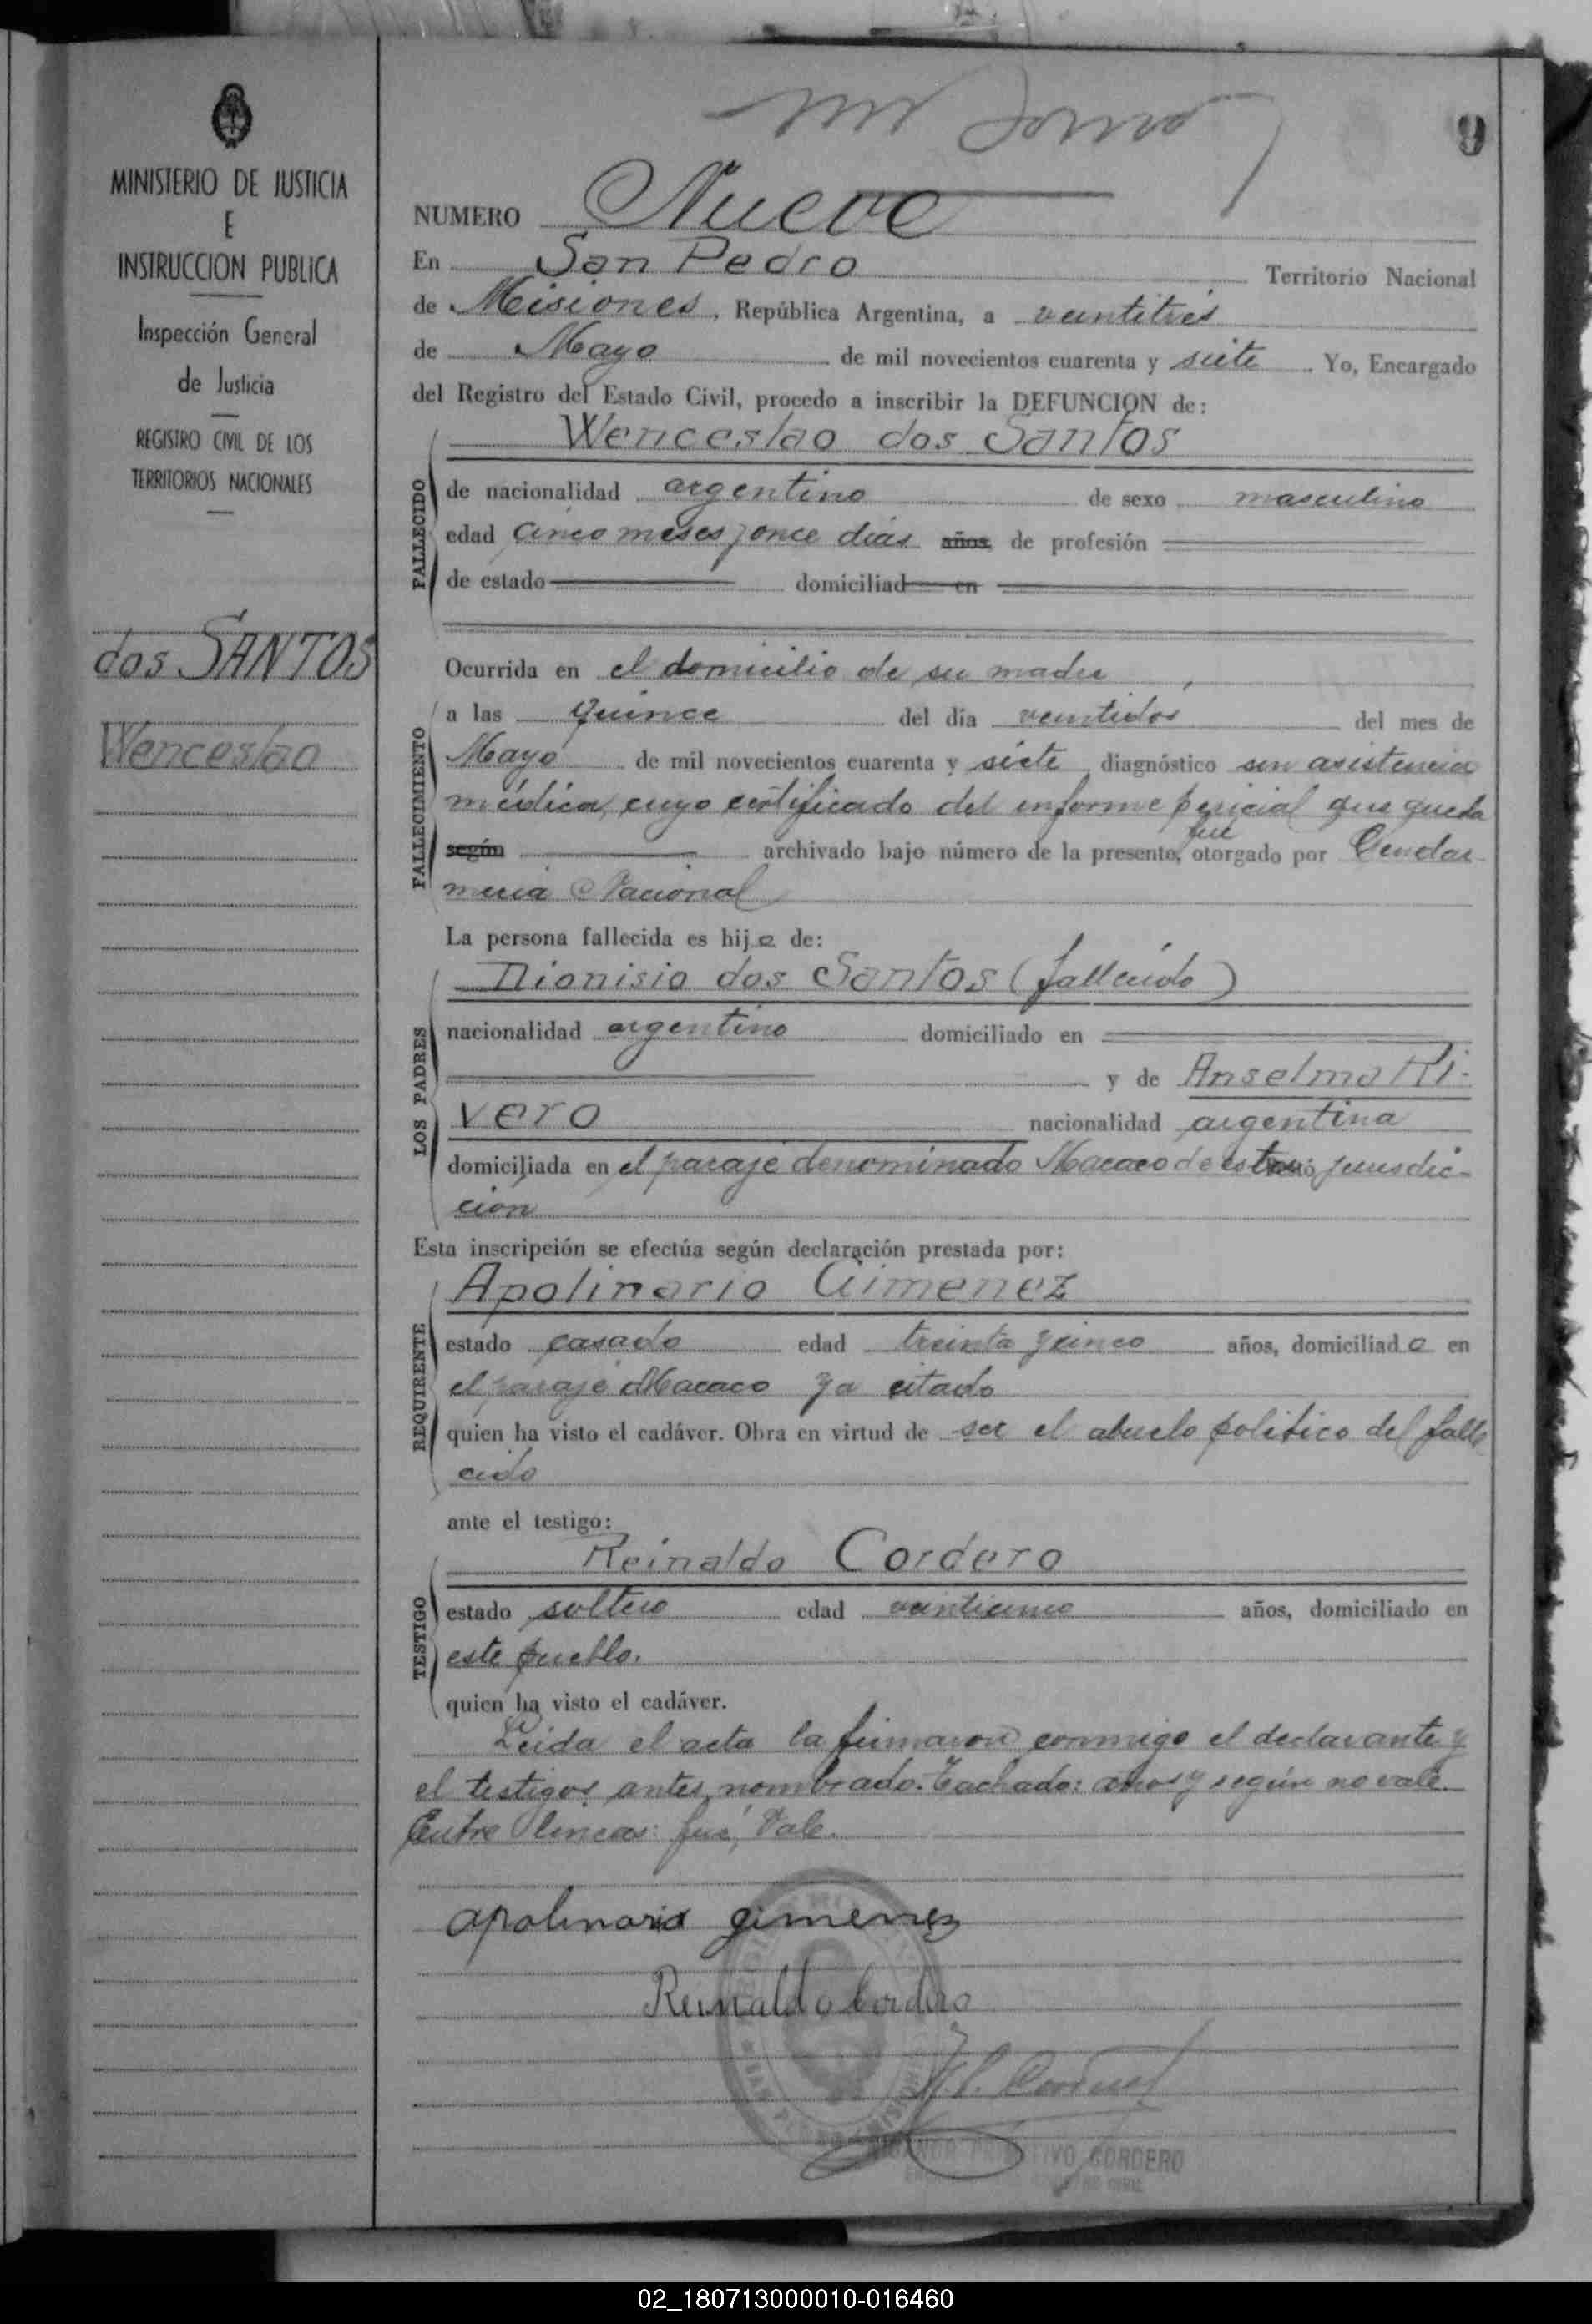 MINISTERIO DE JUSTICIA
E
INSTRUCCION PUBLICA
Inspección General
de Justicia
REGISTRO CIVIL DE LOS
TERRITORIOS NACIONALES
dos SANTOS
Wenceslao
9
NUMERO Nueve
En San Pedro Territorio Nacional
de Misiones, República Argentina, a veintitrés
de Mayo de mil novecientos cuarenta y siete. Yo, Encargado
del Registro del Estado Civil, procedo a inscribir la DEFUNCION de:
Wenceslao dos Santos
FALLECIDO
de nacionalidad argentino de sexo masculino
edad cinco meses y once días años de profesión
de estado domiciliad en
Ocurrida en el domicilio de su madre,
FALLECIMIENTO
a las quince del día veintidos del mes de
Mayo de mil novecientos cuarenta y siete, diagnóstico sin asistencia
médica, cuyo certificado del informe pericial que queda
según archivado bajo número de la presente, fué otorgado por Gendar-
meria Nacional
La persona fallecida es hijo de:
LOS PADRES
Dionisio dos Santos (fallecido)
nacionalidad argentino domiciliado en
y de Anselma Ri-
vero nacionalidad argentina
domiciliada en el paraje denominado Macaco de esta jurisdic-
ción
Esta inscripción se efectúa según declaración prestada por:
REQUIRENTE
Apolinario Gimenez
estado casado edad treinta y cinco años, domiciliado en
el paraje Macaco ya citado
quien ha visto el cadáver. Obra en virtud de ser el abuelo politico del falle
cido
ante el testigo:
TESTIGO
Reinaldo Cordero
estado soltero edad veinticinco años, domiciliado en
este pueblo.
quien ha visto el cadáver.
Leida el acta la firmaron conmigo el declarante y
el testigos antes nombrado. Tachado: años y según no vale.
Entre lineas: fué, Vale.
apolinario gimenez
Reinaldo Cordero
CORDERO
02_180713000010-016460